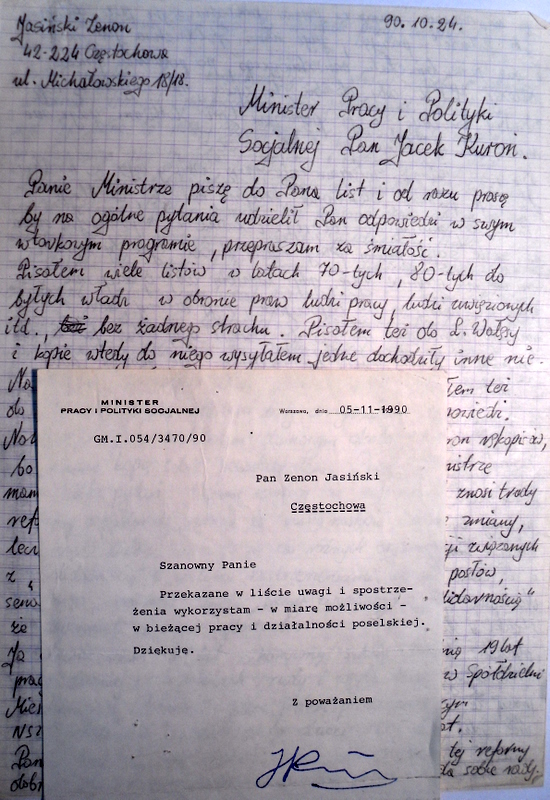 Jasiński Zenon
90.10.24.
42-224 Częstochowa
ul. Michałowskiego 18/18.
Minister Pracy i Polityki
Socjalnej Pan Jacek Kuroń.
Panie Ministrze piszę do Pana list i od razu proszę
by na ogólne pytania udzielił Pan odpowiedzi w swym
wtorkowym programie, przepraszam za śmiałość.
Pisałem wiele listów w latach 70-tych, 80-tych do
byłych władz w obronie praw ludzi pracy, ludzi uwięzionych
itd., bez żadnego strachu. Pisałem też do L. Wałęsy
i kopie wtedy do niego wysyłałem jedne dochodziły inne nie.
łem też
do
bo
mam
znosi trudy
zmiany,
lecz
ji związanych
z
posłów,
że
19 lat
Ja
w Spółdzielni
NSZ
Pan
tej reformy
sobie rady.
MINISTER
PRACY I POLITYKI SOCJALNEJ
Warszawa, dnia 05-11-1990
GM.I.054/3470/90
Pan Zenon Jasiński
Częstochowa
Szanowny Panie
Przekazane w liście uwagi i spostrze-
żenia wykorzystam - w miarę możliwości -
w bieżącej pracy i działalności poselskiej.
Dziękuję.
Z poważaniem